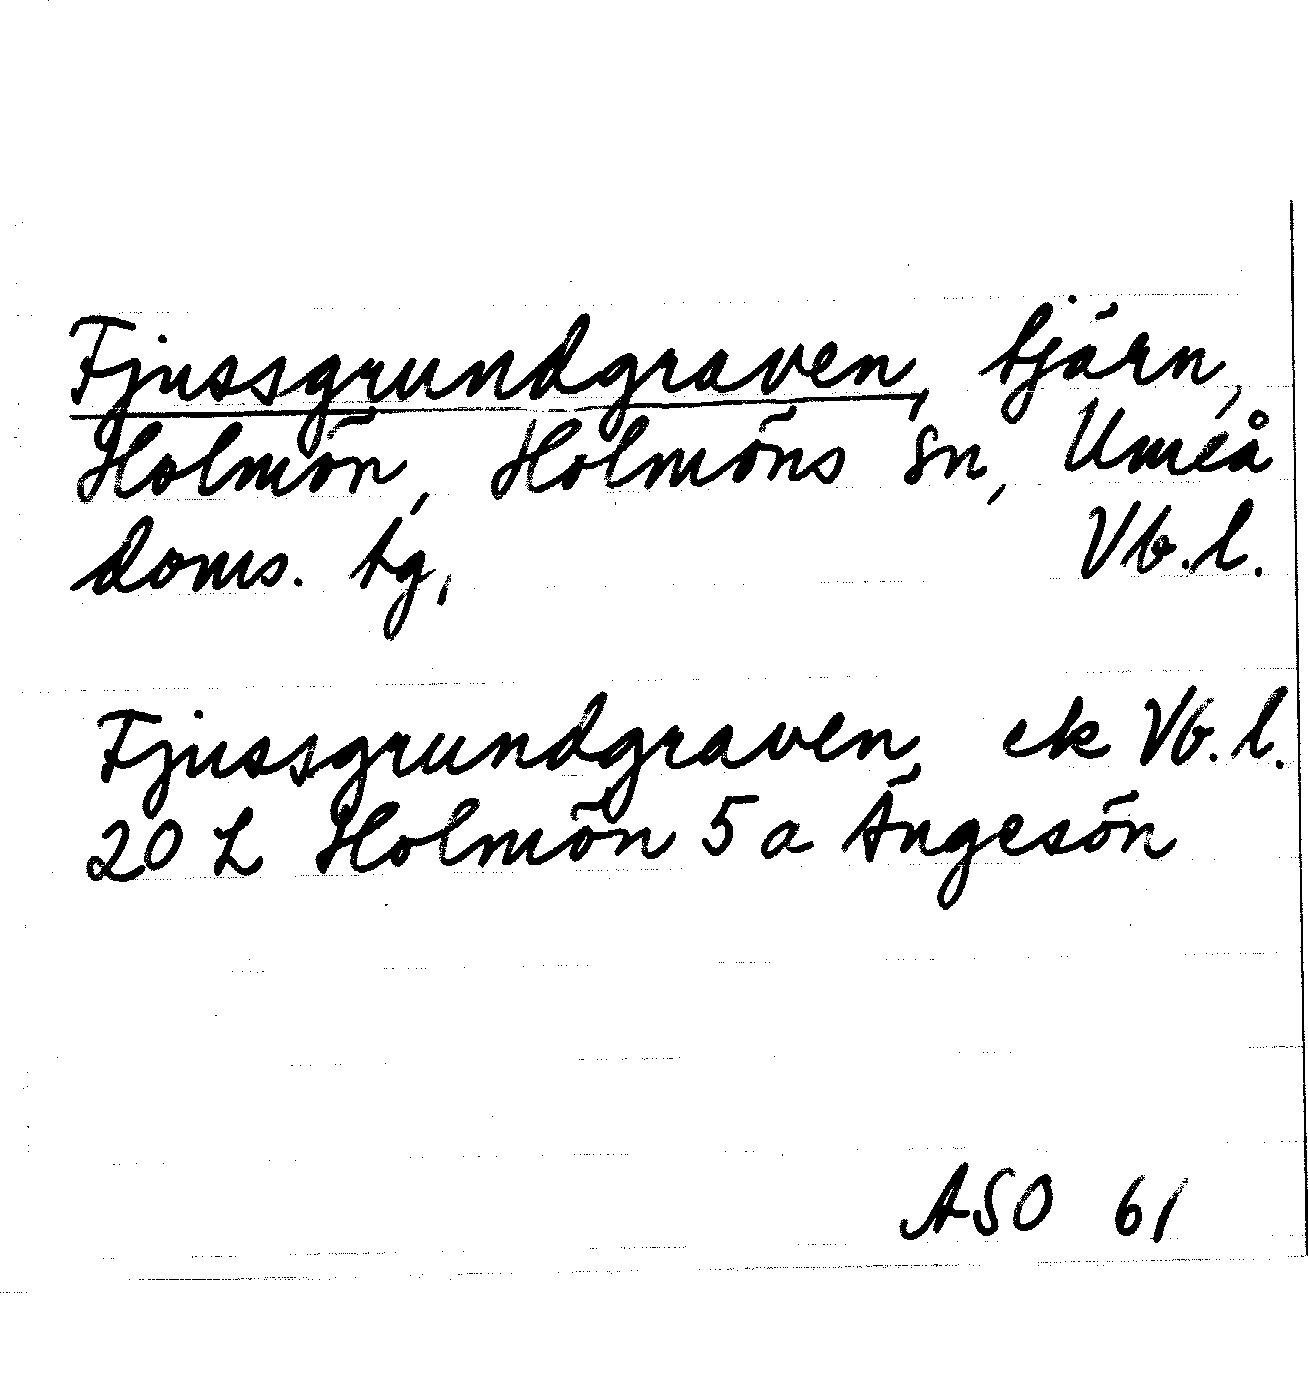 Fjussgrundgraven, tjärn,
Holmön, Holmöns sn, Umeå
doms. tg, Vb.l.
Fjussgrundgraven, ek Vb.l.
20 L Holmön 5 a Ängesön
ASO 61